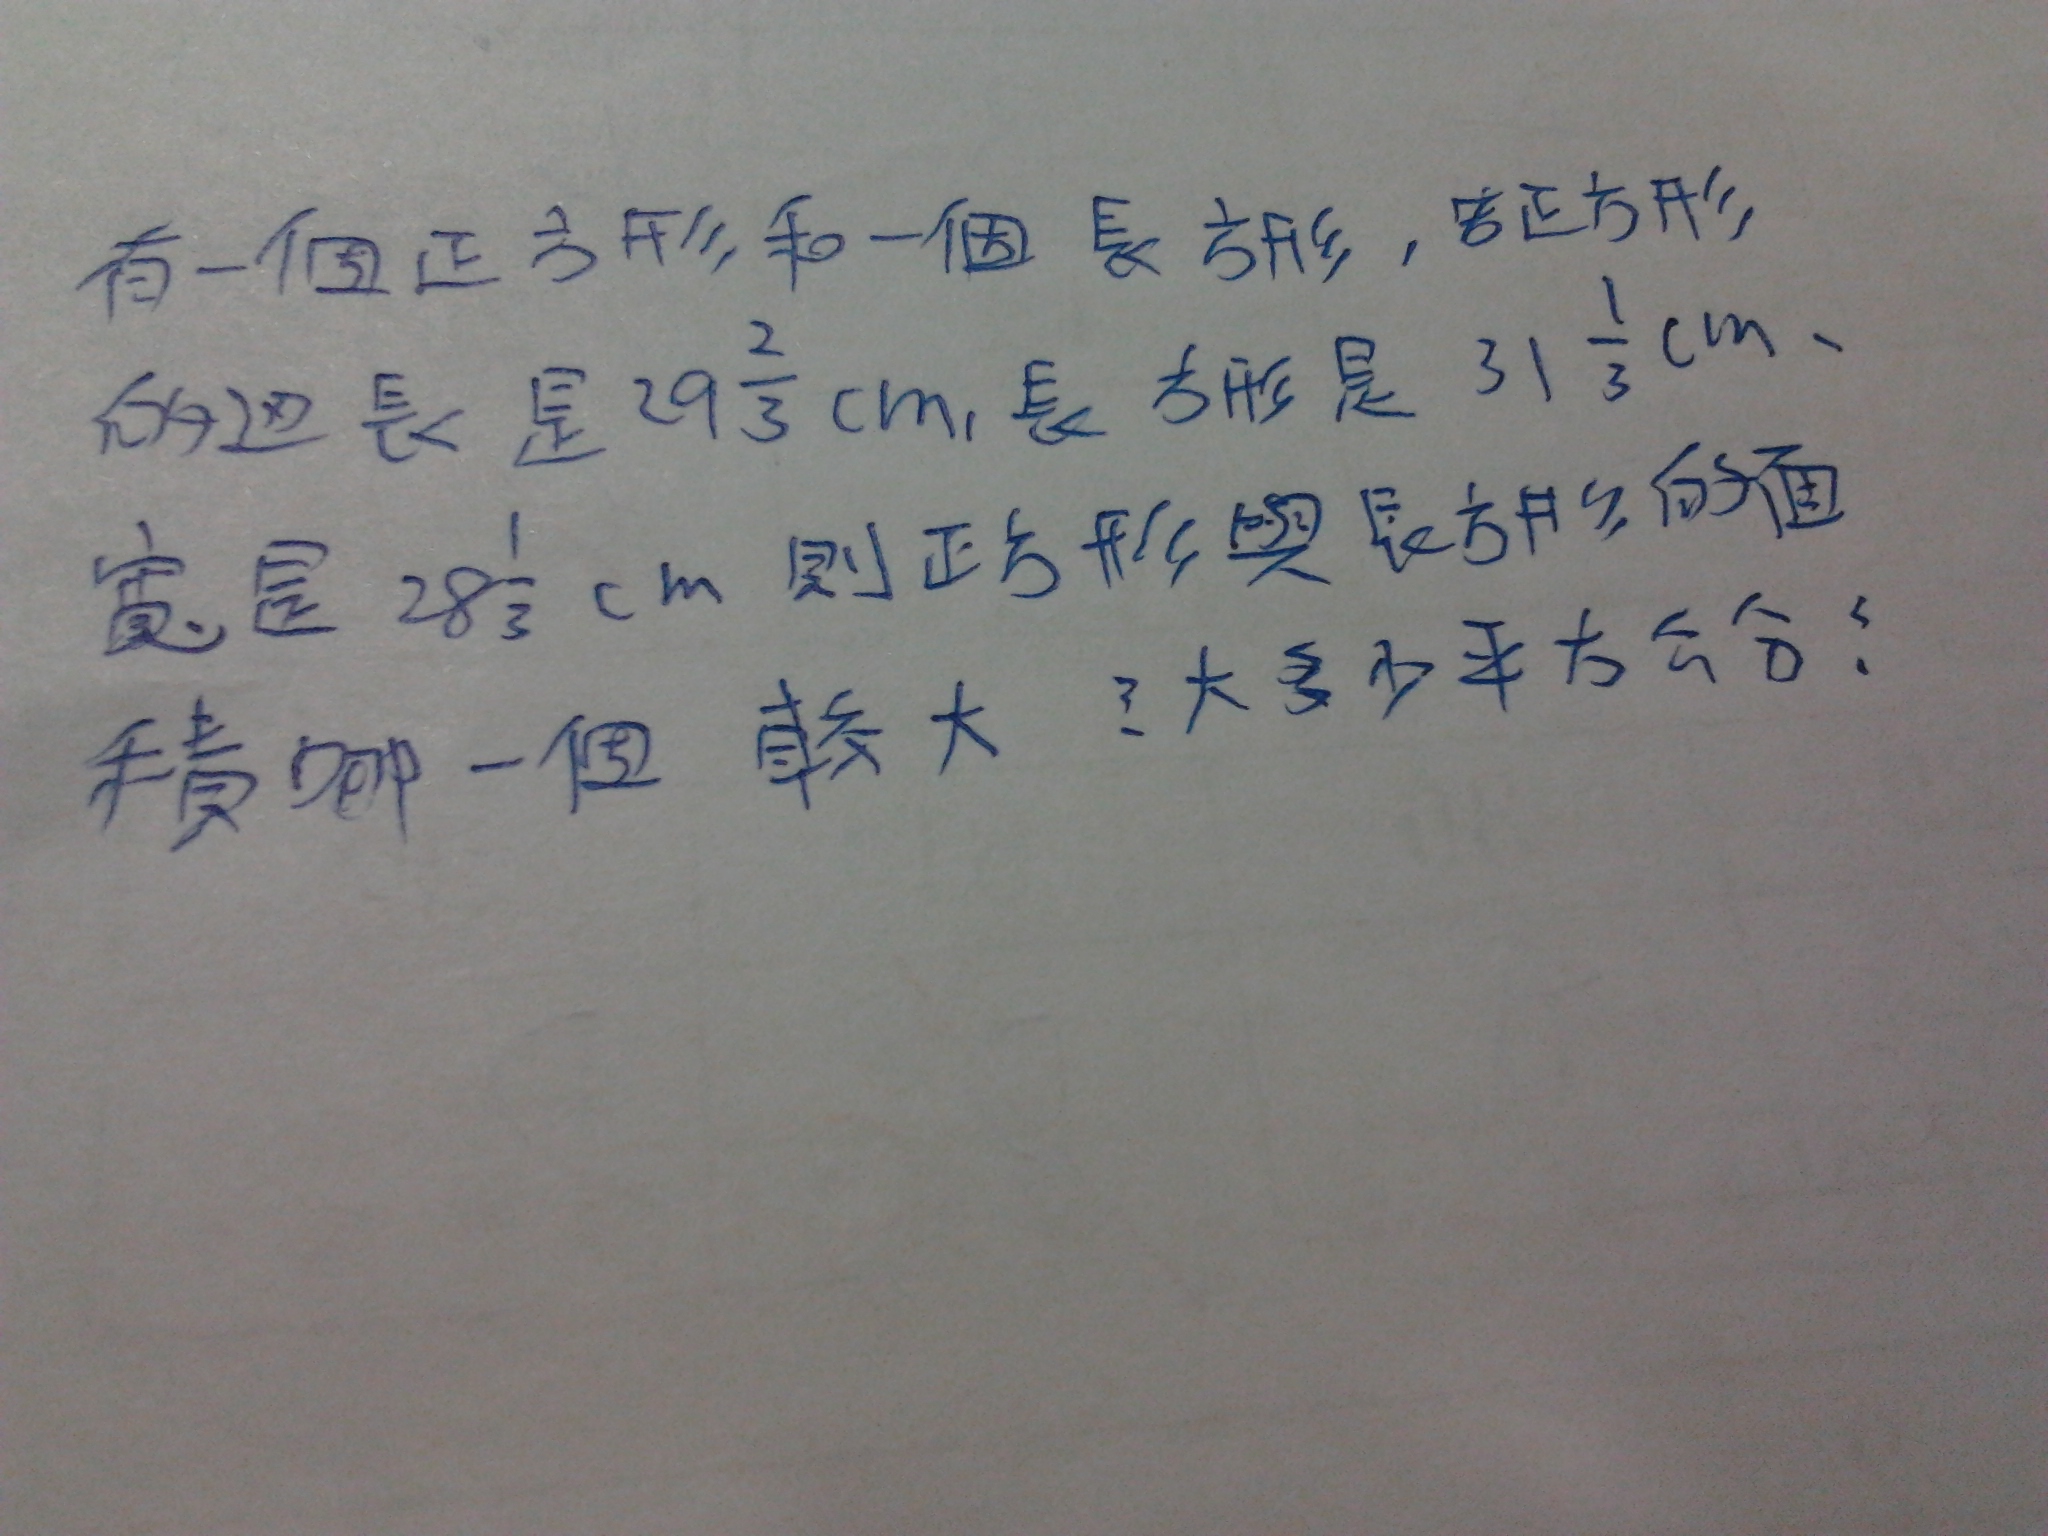 有一個正方形和一個長方形，若正方形
的边長是29 2/3 cm，長方形是 31 1/3 cm、
寬是 28 1/3 cm 則正方形與長方形的面
積哪一個較大？大多少平方公分？